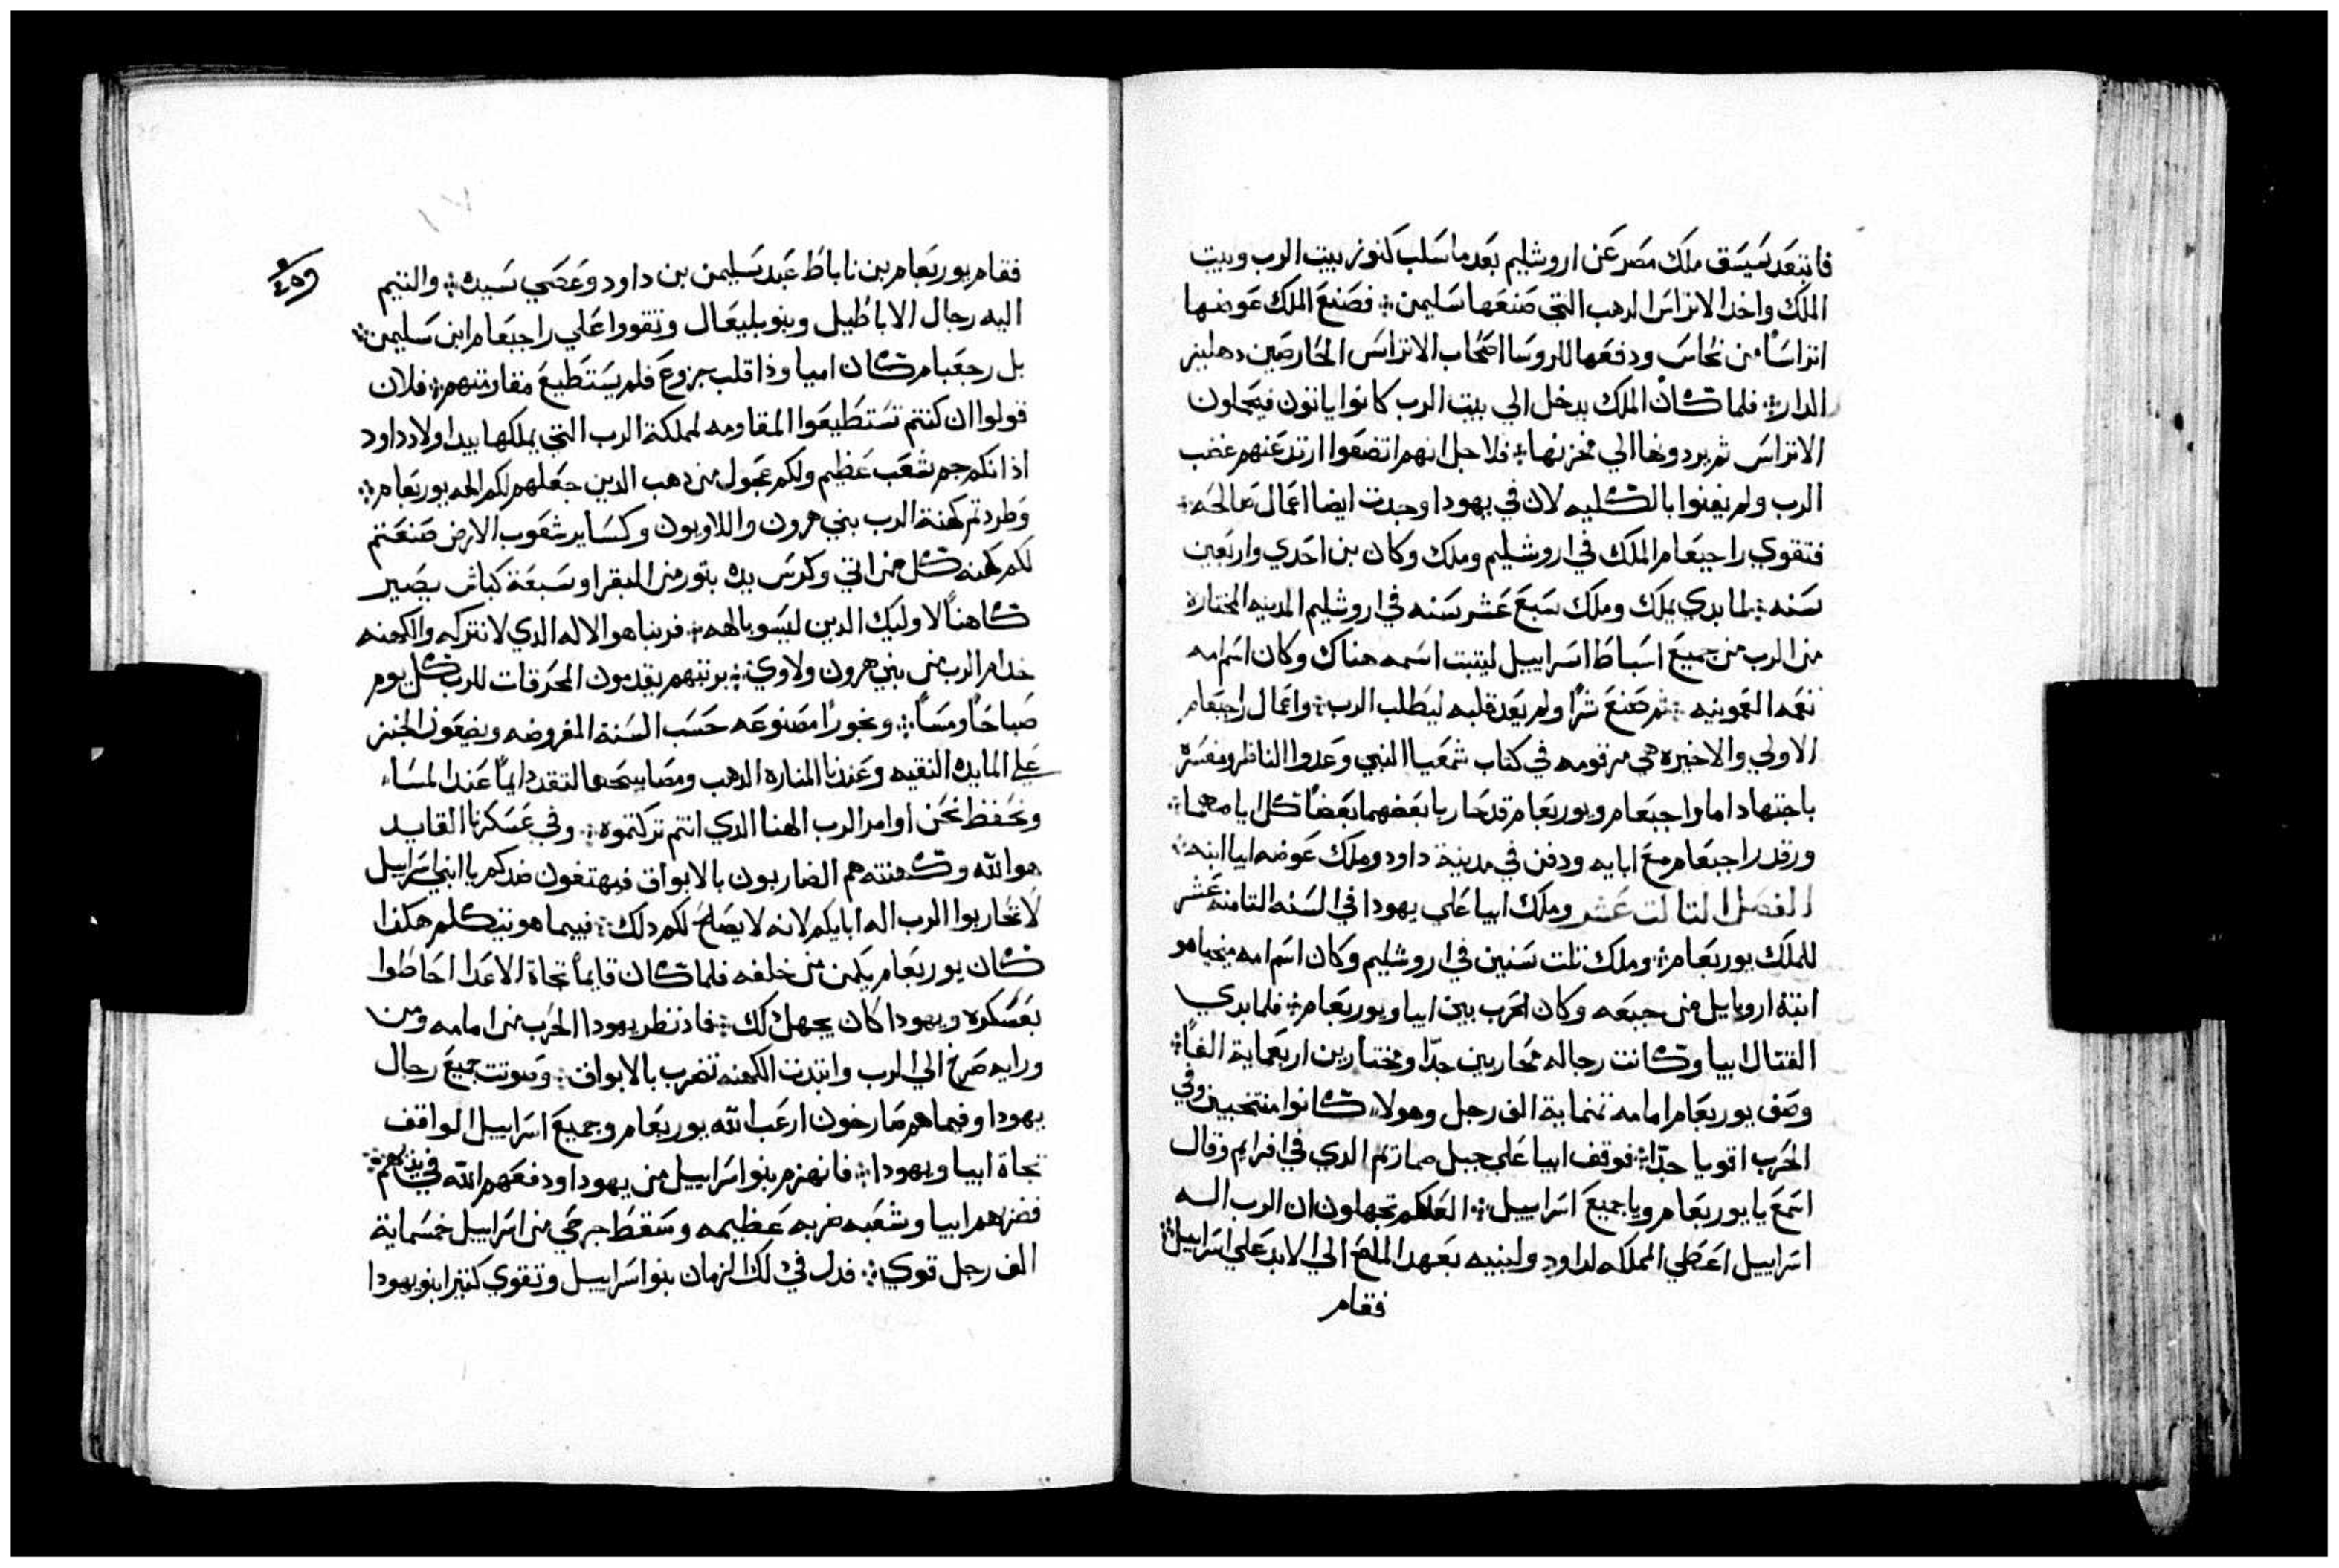 فابتعد سيسق ملك مصر عن اروشليم بعد ما سلب كنوز بيت الرب وبيت
الملك واخذ الاتراس الدهب التي صنعها سليمن ፨ فصنع الملك عوضها
اتراسًا من نحاس ودفعها للروسا اصحاب الاتراس الحارصين دهليز
الدار ፨ فلما كان الملك يدخل الي بيت الرب كانوا ياتون فيحملون
الاتراس ثم يردونها الي مخزنها ፨ فلاجل انهم اتضعوا ارتد عنهم غضب
الرب ولم يفنوا بالكليه لان في يهودا وجدت ايضا اعمال صالحه ፨
فتقوي راجبعام الملك في اروشليم وملك وكان بن احدي واربعين
سنه ፨ لما بدي يملك وملك سبع عشر سنه في اروشليم المدينه المختارة
من الرب من جميع اسباط اسراييل ليتبت اسمه هناك وكان اسم امه
نعمه العمونيه ፨ ثم صنع شرًا ولم يعد قلبه ليطلب الرب ፨ واعمال راجبعام
الاولي والاخيره هي مرقومه في كتاب شمعيا النبي وعدوا الناظر ومفسرة
باجتهاد اما راجبعام ويوربعام قد حاربا بعضهما بعضًا كل ايامهما ፨
ورقد راجبعام مع ابايه ودفن في مدينة داود وملك عوضه ابيا ابنه ፨
الفصل التالت عشر وملك ابيا علي يهودا في السنه التامنه عشر
للملك يوربعام ፨ وملك تلت سنين في اروشليم وكان اسم امه ميخيا هو
ابنة اروبايل من جبعه وكان الحرب بين ابيا ويوربعام ፨ فلما بدي
القتال ابيا وكانت رجاله محاربين جدًا ومختارين اربعماية الفًا ፨
وصف يوربعام امامه تمنماية الف رجل وهولاء كانوا منتخبين وفي
الحرب اقويا جدًا ፨ فوقف ابيا علي جبل صمازيم الدي في افرايم وقال
اسمع يا يوربعام ويا جميع اسراييل ፨ العلكم تجهلون ان الرب اله
اسراييل اعطي المملكه لداود ولبنيه بعهد الملح الي الابد علي اسراييل ፨
فقام
فقام يوربعام بن ناباط عبد سليمن بن داود وعصي سيده ፨ والتيم
اليه رجال الاباطيل وبنو بليعال وتقووا علي راجبعام ابن سليمن ፨
بل رجعبام كان اميا وذا قلب جزوع فلم يستطيع مقاومتهم ፨ فلان
قولوا ان كنتم تستطيعوا المقاومه لمملكة الرب التي يملكها بيد اولاد داود
اذ انكم جم شعب عظيم ولكم عجول من دهب الدين جعلهم لكم الهه يوربعام ፨
وطردتم كهنة الرب بني هرون واللاويون وكساير شعوب الارض صنعتم
لكم كهنه كل من اتي وكرس يده بتور من البقر او سبعة كباش يصير
كاهنًا لاوليك الدين ليسو بالهه ፨ فربنا هو الاله الدي لا نتركه والكهنه
خدام الرب من بني هرون ولاوي ፨ برتبهم يقدمون المحرقات للرب كل يوم
صباحًا ومسًا ፨ وبخورًا مصنوعه حسب السنة المفروضه ويضعون الخبز
علي المايده النقيه وعندنا المناره الدهب ومصابيحها لتقد دايمًا عند المساء
ونحفظ نحن اوامر الرب الهنا الدي انتم تركتموه ፨ وفي عسكرنا القايد
هو الله وكهنته هم الضاربون بالابواق فيهتفون ضدكم يا ابني اسراييل
لا تحاربوا الرب اله ابايكم لانه لا يصلح لكم دلك ፨ فبيما هو يتكلم هكذا
كان يوربعام يكمن من خلفه فلما كان قايمًا تجاة الاعدا احاطوا
بعسكره ويهودا كان يجهل دلك ፨ فاد نظر يهودا الحرب من امامه ومن
ورايه صرخ الي الرب وابتدت الكهنه تضرب بالابواق ፨ وصوتت جميع رجال
يهودا وفيما هم صارخون ارعب الله يوربعام وجميع اسراييل الواقف
تجاة ابيا ويهودا ፨ فانهزم بنوا اسراييل من يهودا ودفعهم الله في يديهم ፨
فضربهم ابيا وشعبه ضربه عظيمه وسقط جرحي من اسراييل خمسماية
الف رجل قوي ፨ فدل في دلك الزمان بنوا اسراييل وتقوي كتيرا بنو يهودا